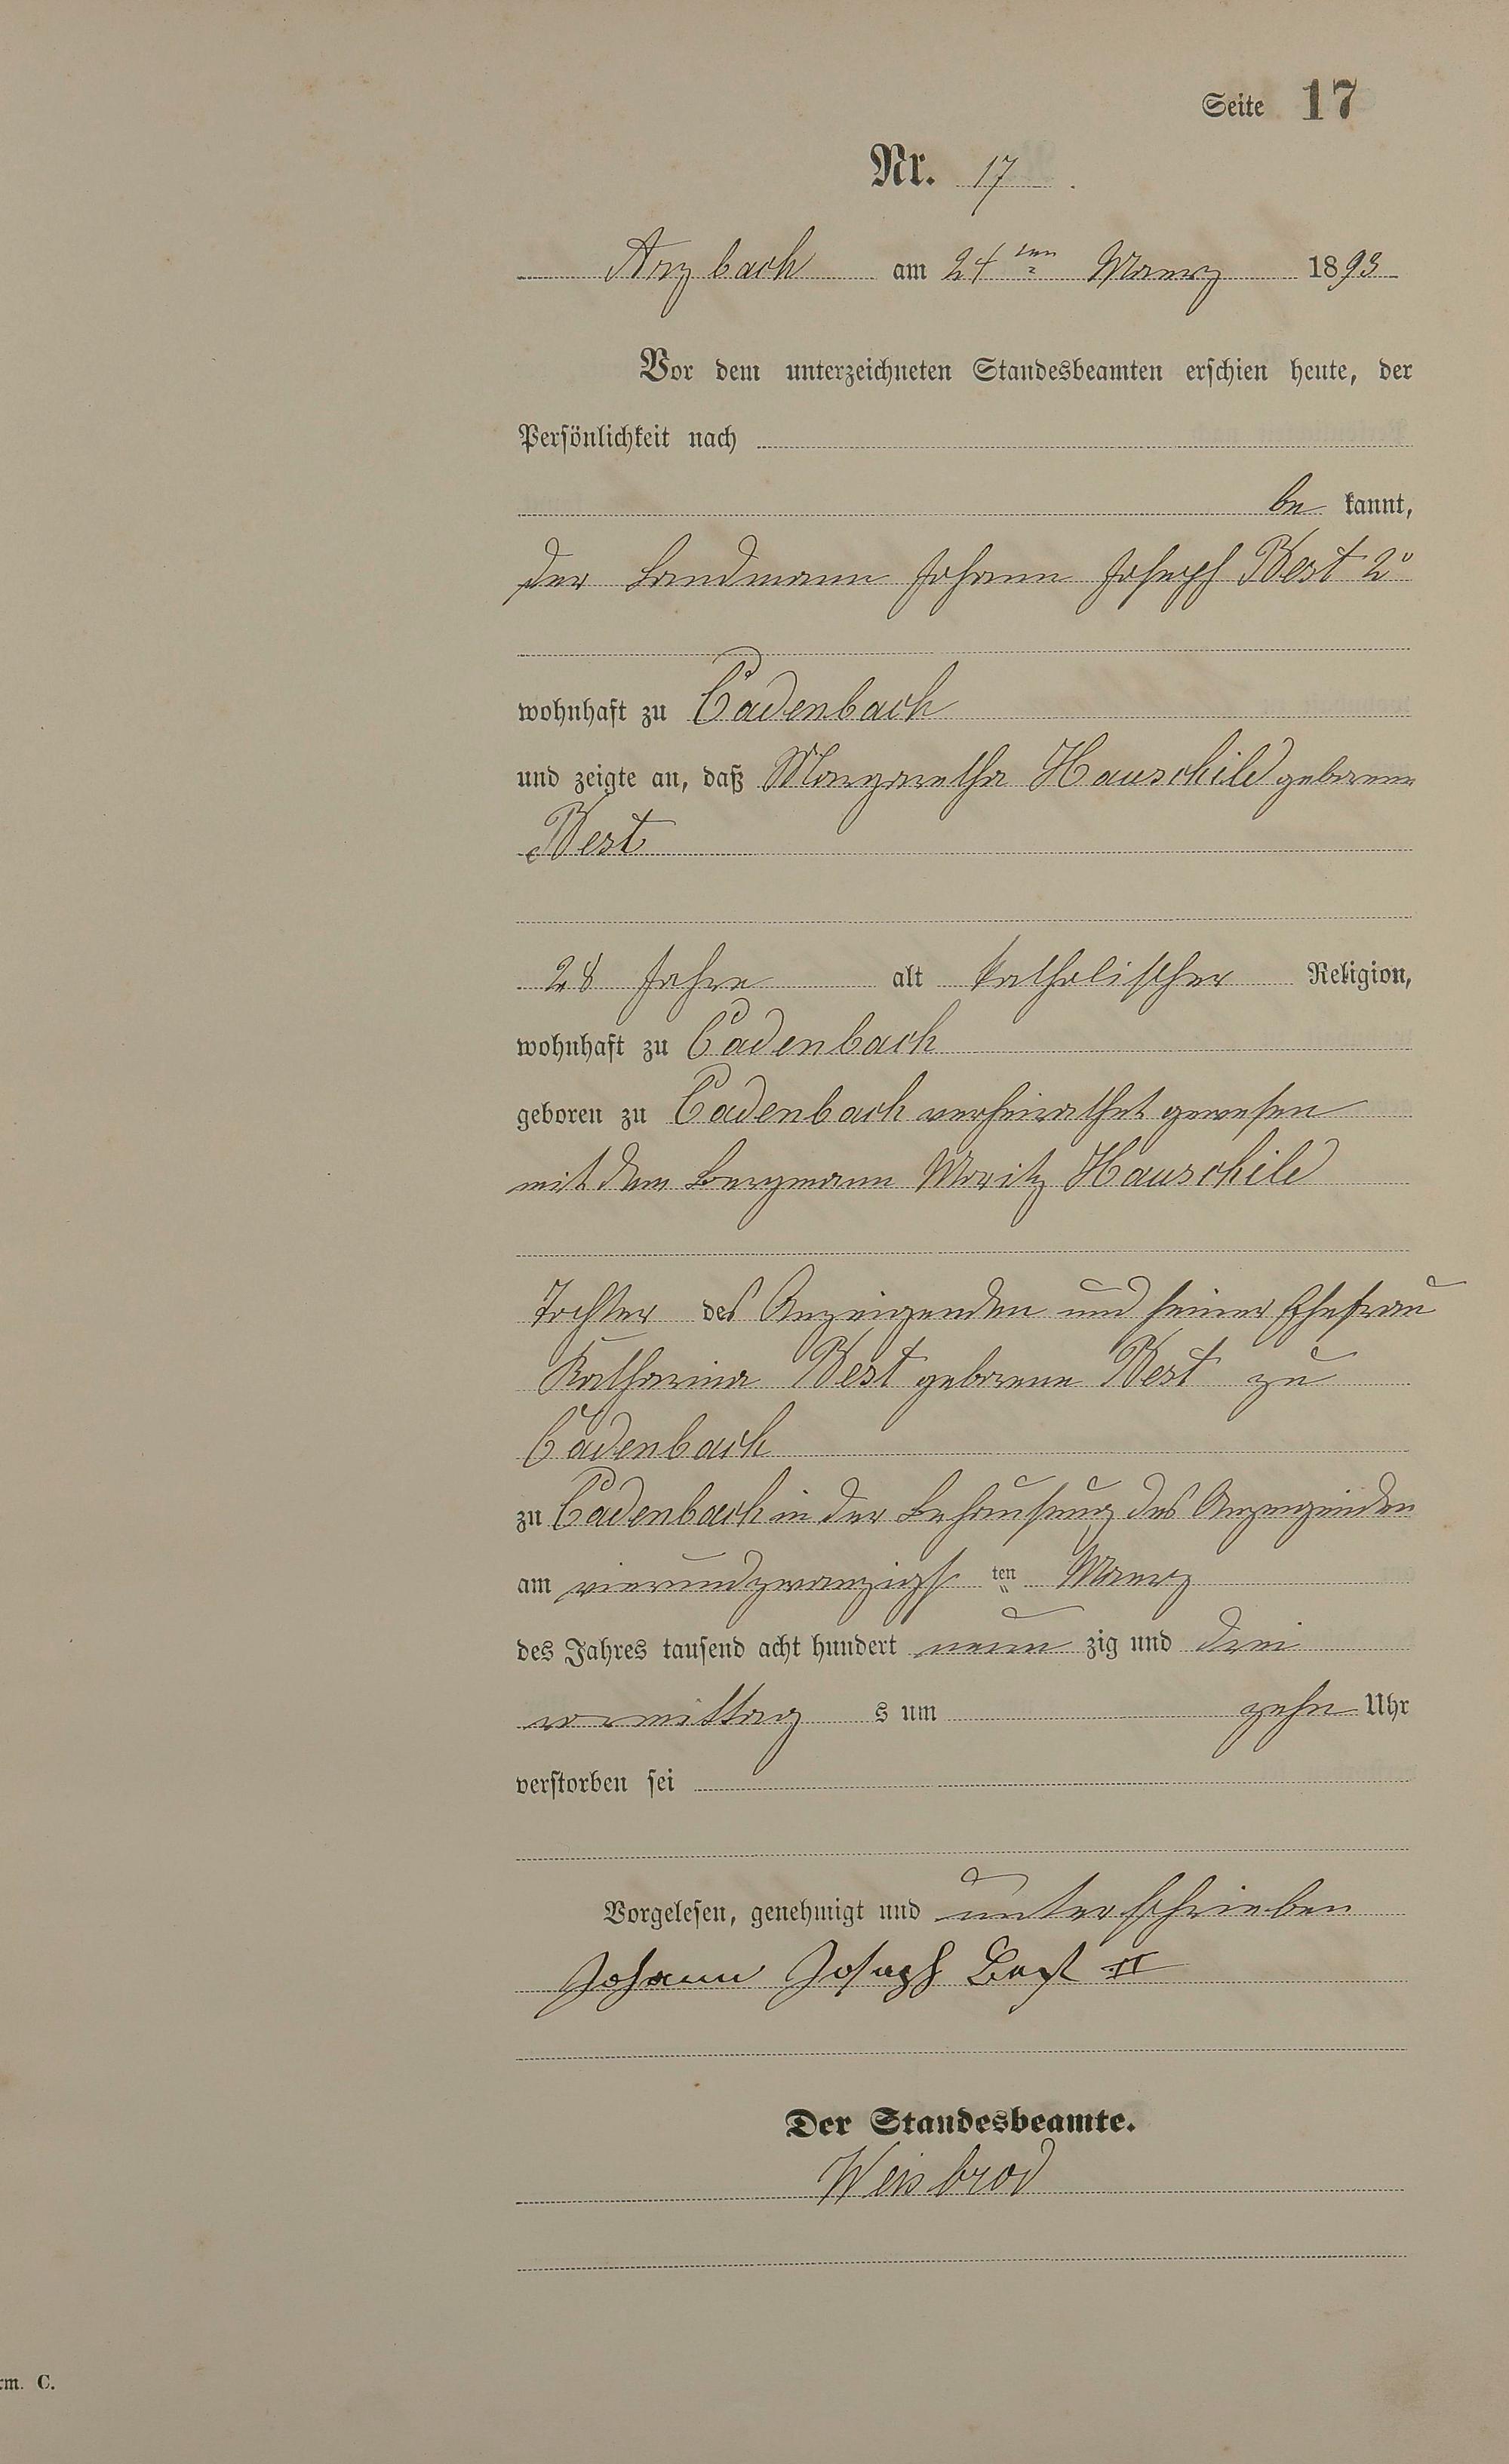 Seite 17
Nr. 17.
Arzbach am 24ten Maerz 1893
Vor dem unterzeichneten Standesbeamten erschien heute, der
Persönlichkeit nach
be kannt,
der Landmann Johann Joseph Best 2r
wohnhaft zu Cadenbach
und zeigte an, daß Margaretha Hauschild geborene
Best
28 Jahre alt katholischer Religion,
wohnhaft zu Cadenbach
geboren zu Cadenbach verheirathet gewesen
mit dem Bergmann Moritz Hauschild
Tochter des Anzeigenden und seiner Ehefrau
Katharina Best geborene Best zu
Cadenbach
zu Cadenbach in der Behausung des Anzeigenden
am vierundzwanzigsten Maerz
des Jahres tausend acht hundert neun zig und drei
vormittag s um zehn Uhr
verstorben sei
Vorgelesen, genehmigt und unterschrieben
Johann Joseph Best II
Der Standesbeamte.
Weisbrod
rm. C.